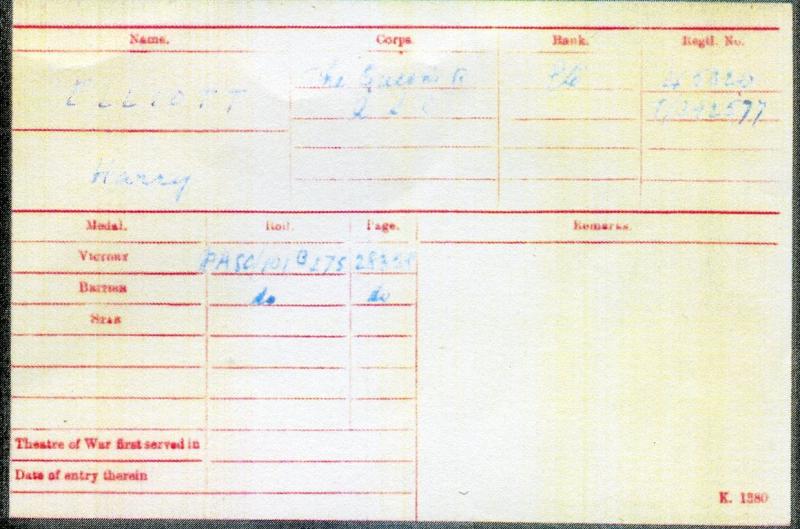 Name. Corps. Rank. Regtl. No.
ELLIOTT The Queen's R Pte
T/242577
Harry
Medal. Roll. Page. Remarks.
Victory RASC/101 B 275
British do do
Star
Theatre of War first served in
Date of entry therein
K. 1380